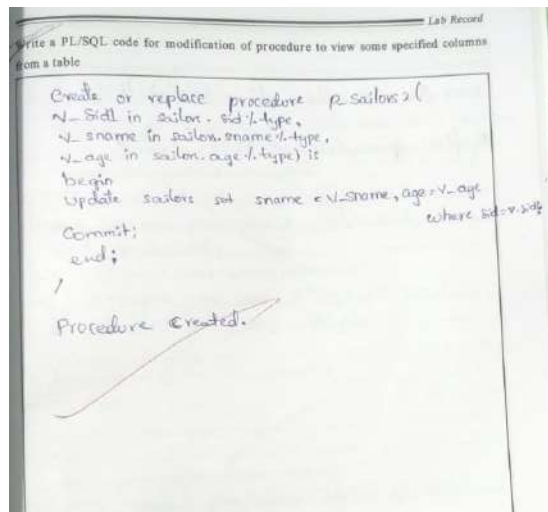 Lab Record
Write a PL/SQL code for modification of procedure to view some specified columns
from a table
Create or replace procedure P_Sailors2(
v_Sid1 in sailor.sid%type,
v_sname in sailor.sname%type,
v_age in sailor.age%type) is
begin
update sailors set sname = v_sname, age=v_age
where sid=v.sid;
Commit;
end;
/
Procedure Created.